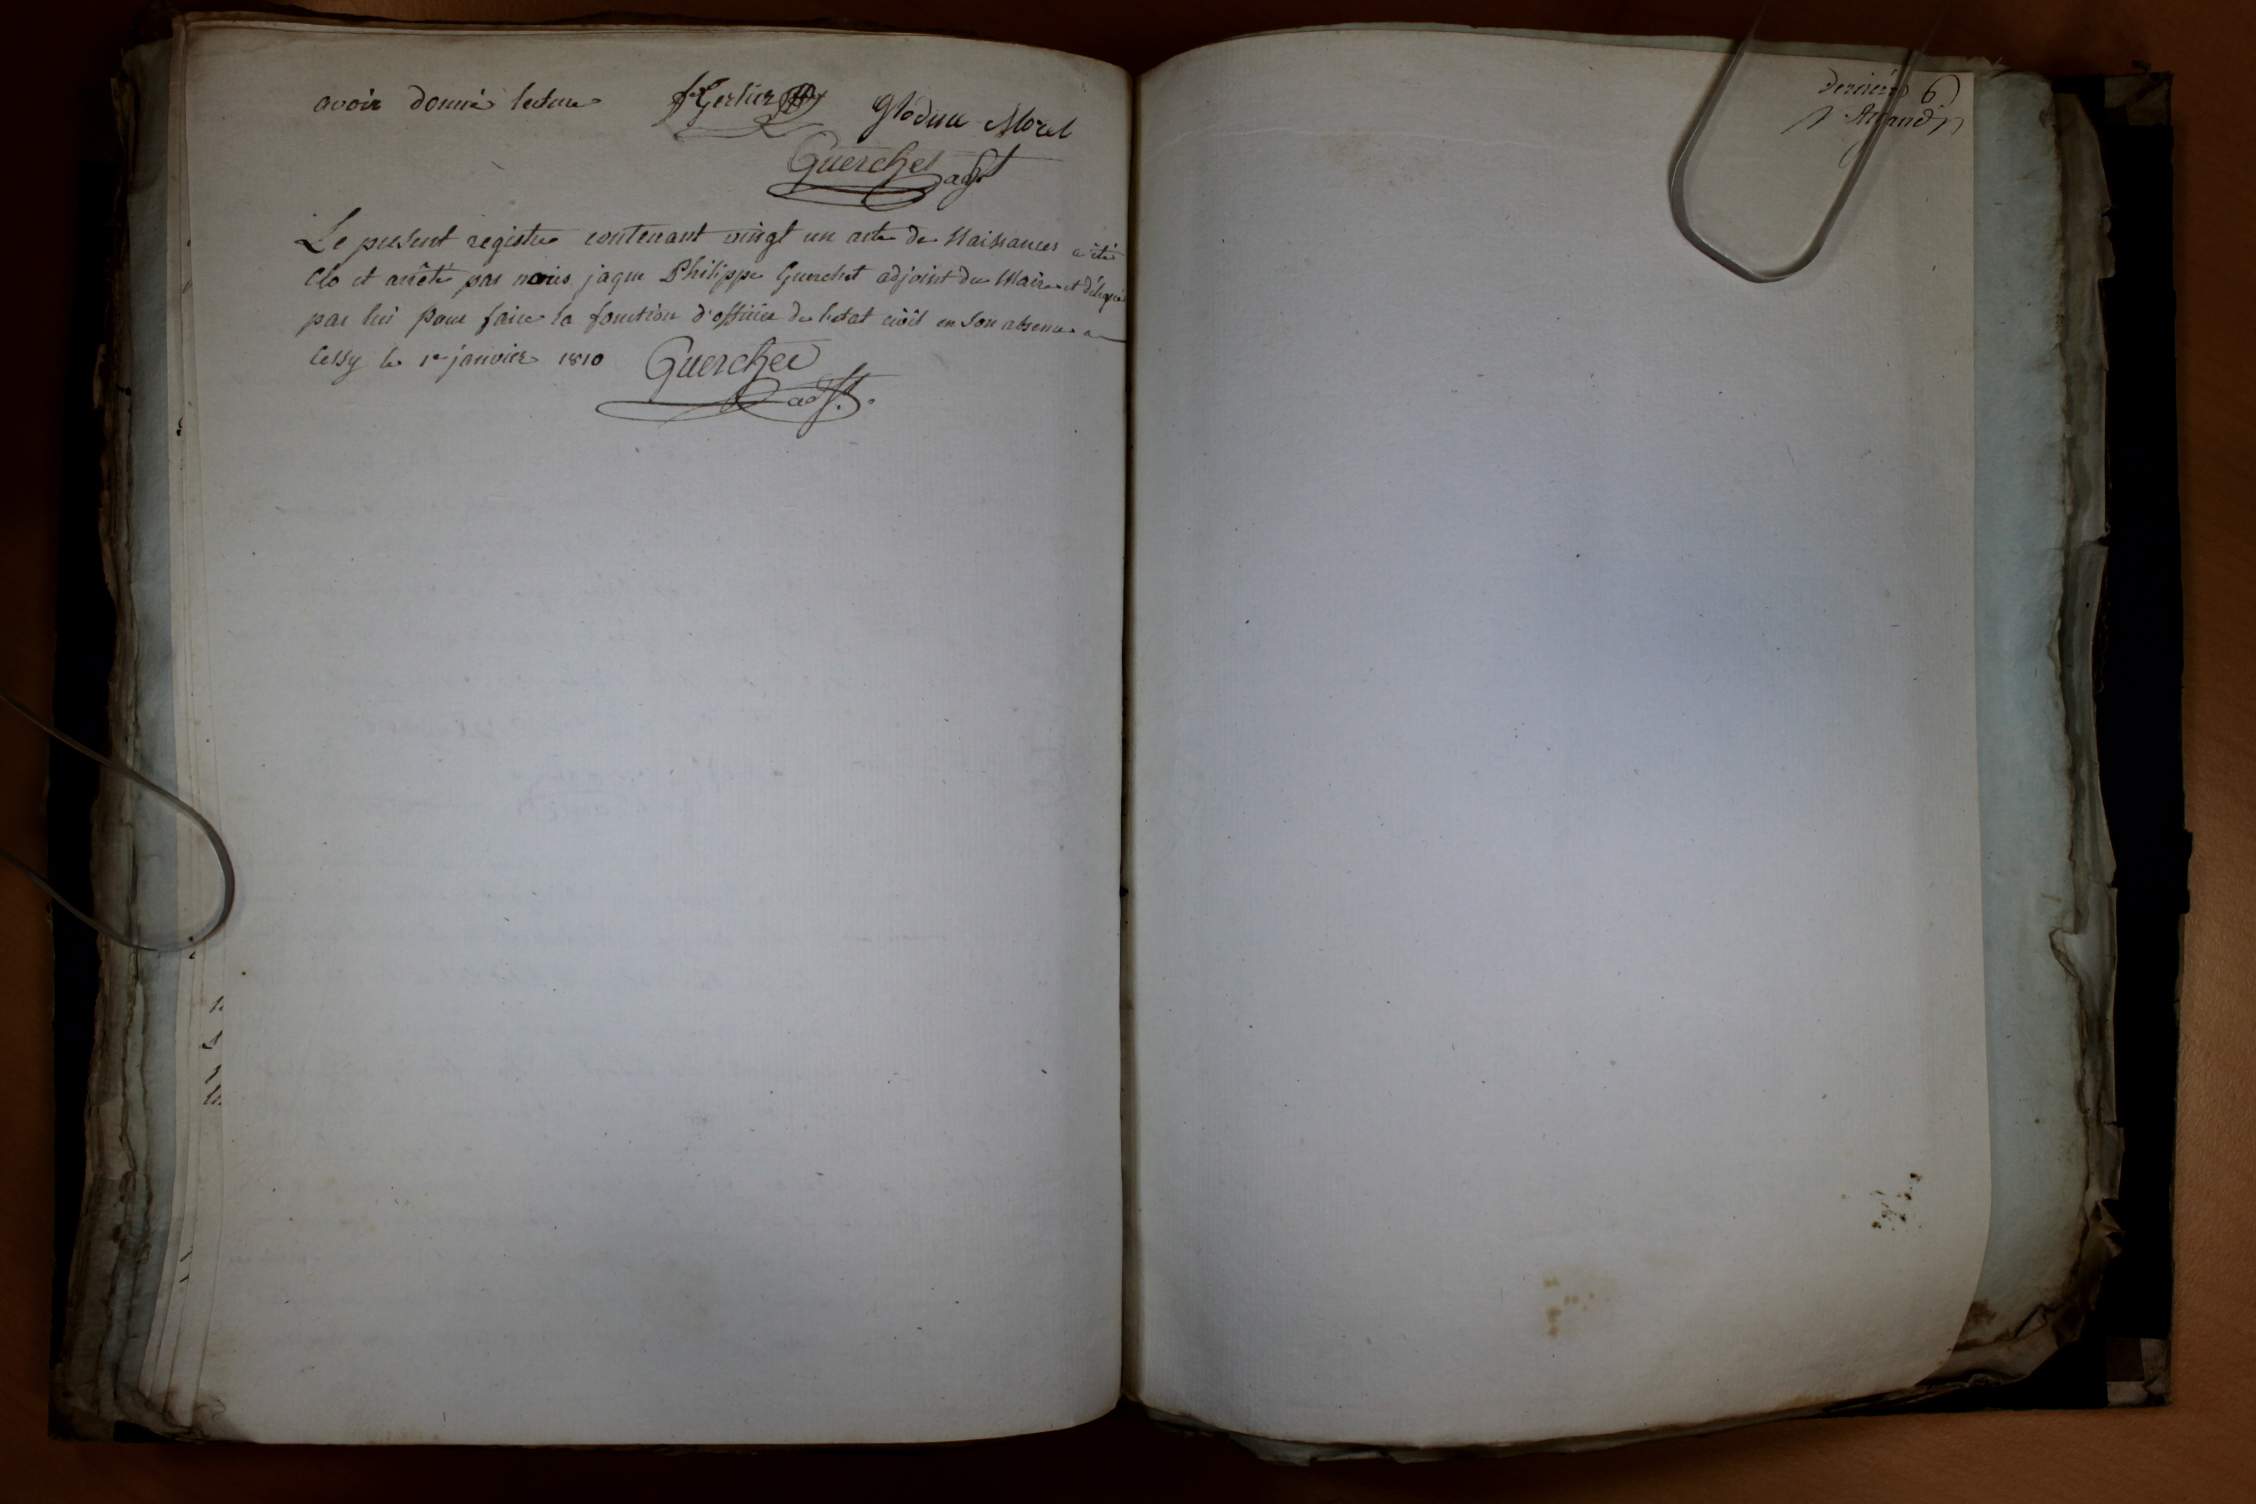 avoir donné lecture f Gerlier Glodiuu Morel
Guerchet adjt
Le présent registre contenant vingt un acte de Naissances a été
clo et arrêté par nous jaque Philippe Guerchet adjoint du Maire et délégué
par lui pour faire la fonction d'officier de l'etat civil en son absence a
Cessy le 1er janvier 1810 Guerchet
adjt.
dernier 6